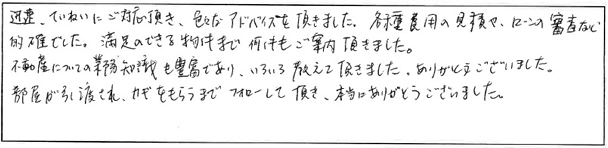 迅速、ていねいにご対応頂き、色々なアドバイスを頂きました。各種費用の見積や、ローンの審査など
的確でした。満足のできる物件まで何件もご案内頂きました。
不動産についての業務知識も豊富であり、いろいろ教えて頂きました。ありがとうございました。
部屋が引き渡され、カギをもらうまでフォローして頂き、本当にありがとうございました。